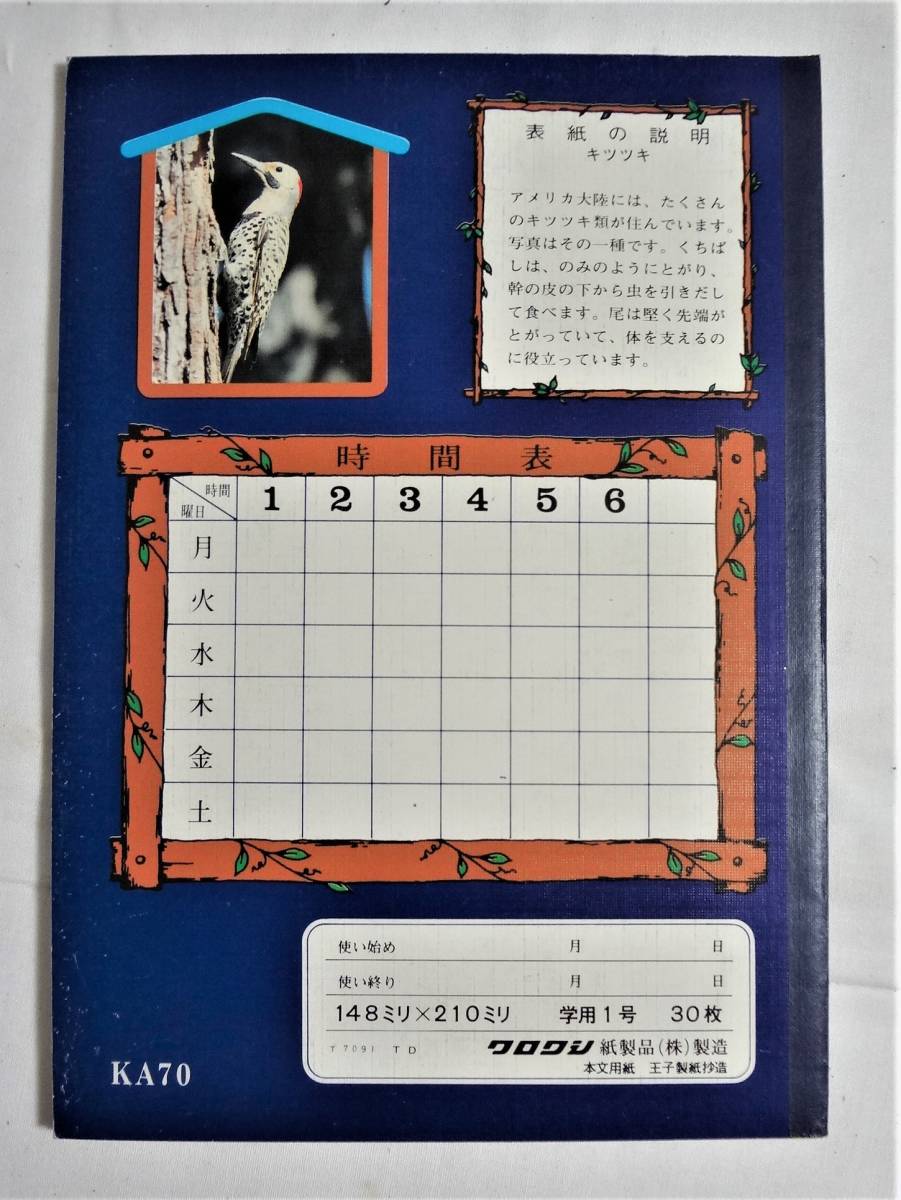 表紙の説明
キツツキ
アメリカ大陸には、たくさん
のキツツキ類が住んでいます。
写真はその一種です。くちば
しは、のみのようにとがり、
幹の皮の下から虫を引きだし
て食べます。尾は堅く先端が
とがっていて、体を支えるの
に役立っています。
時間表
時間 1 2 3 4 5 6
曜日
月
火
水
木
金
土
使い始め 月 日
使い終り 月 日
148ミリ×210ミリ 学用1号 30枚
クロクシ 紙製品(株)製造
本文用紙 王子製紙抄造
KA70